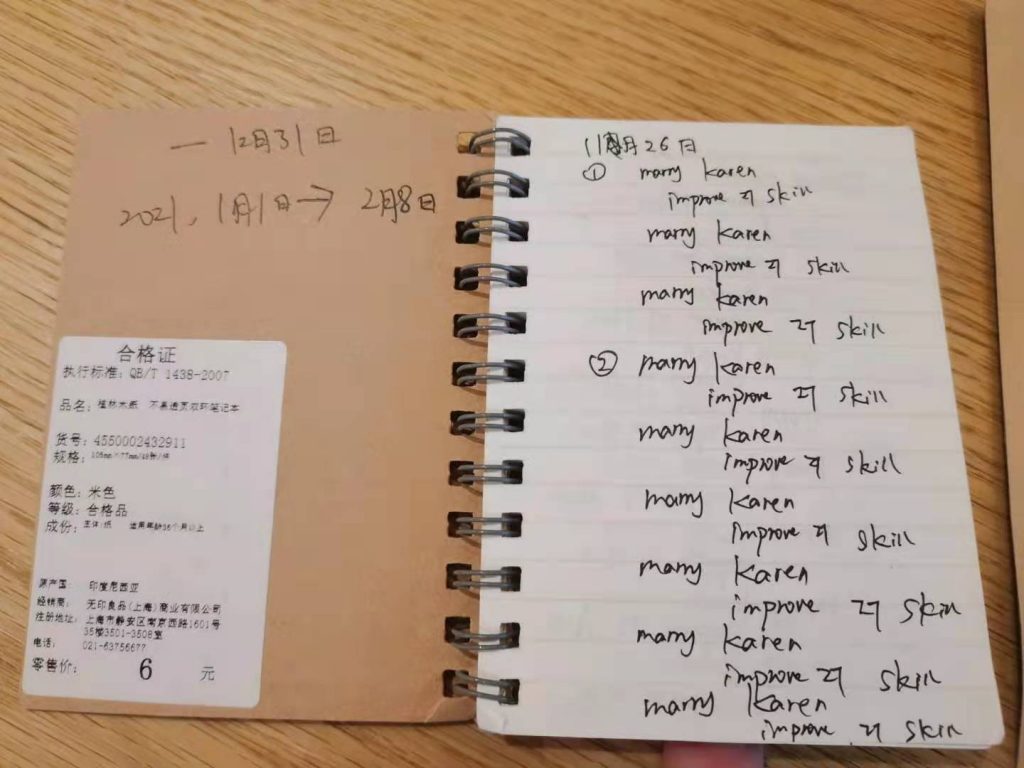 一 12月31日
2021, 1月1日→ 2月8日
合格证
执行标准: QB/T 1438-2007
品名: 植林木纸 不易透页双环笔记本
货号: 4550002432911
规格: 105mm×77mm/48枚/缝
颜色: 米色
等级: 合格品
成份: 主体:纸 适用年龄36个月以上
原产国: 印度尼西亚
经销商: 无印良品(上海)商业有限公司
注册地址: 上海市静安区南京西路1601号
35楼3501-3508室
电话: 021-63756677
零售价: 6 元
11月26日
① marry karen
improve 打 skill
marry karen
improve 打 skill
marry karen
improve 打 skill
② marry karen
improve 打 skill
marry karen
improve 打 skill
marry karen
improve 打 skill
marry karen
improve 打 skill
marry karen
improve 打 skill
marry karen
improve 打 skill